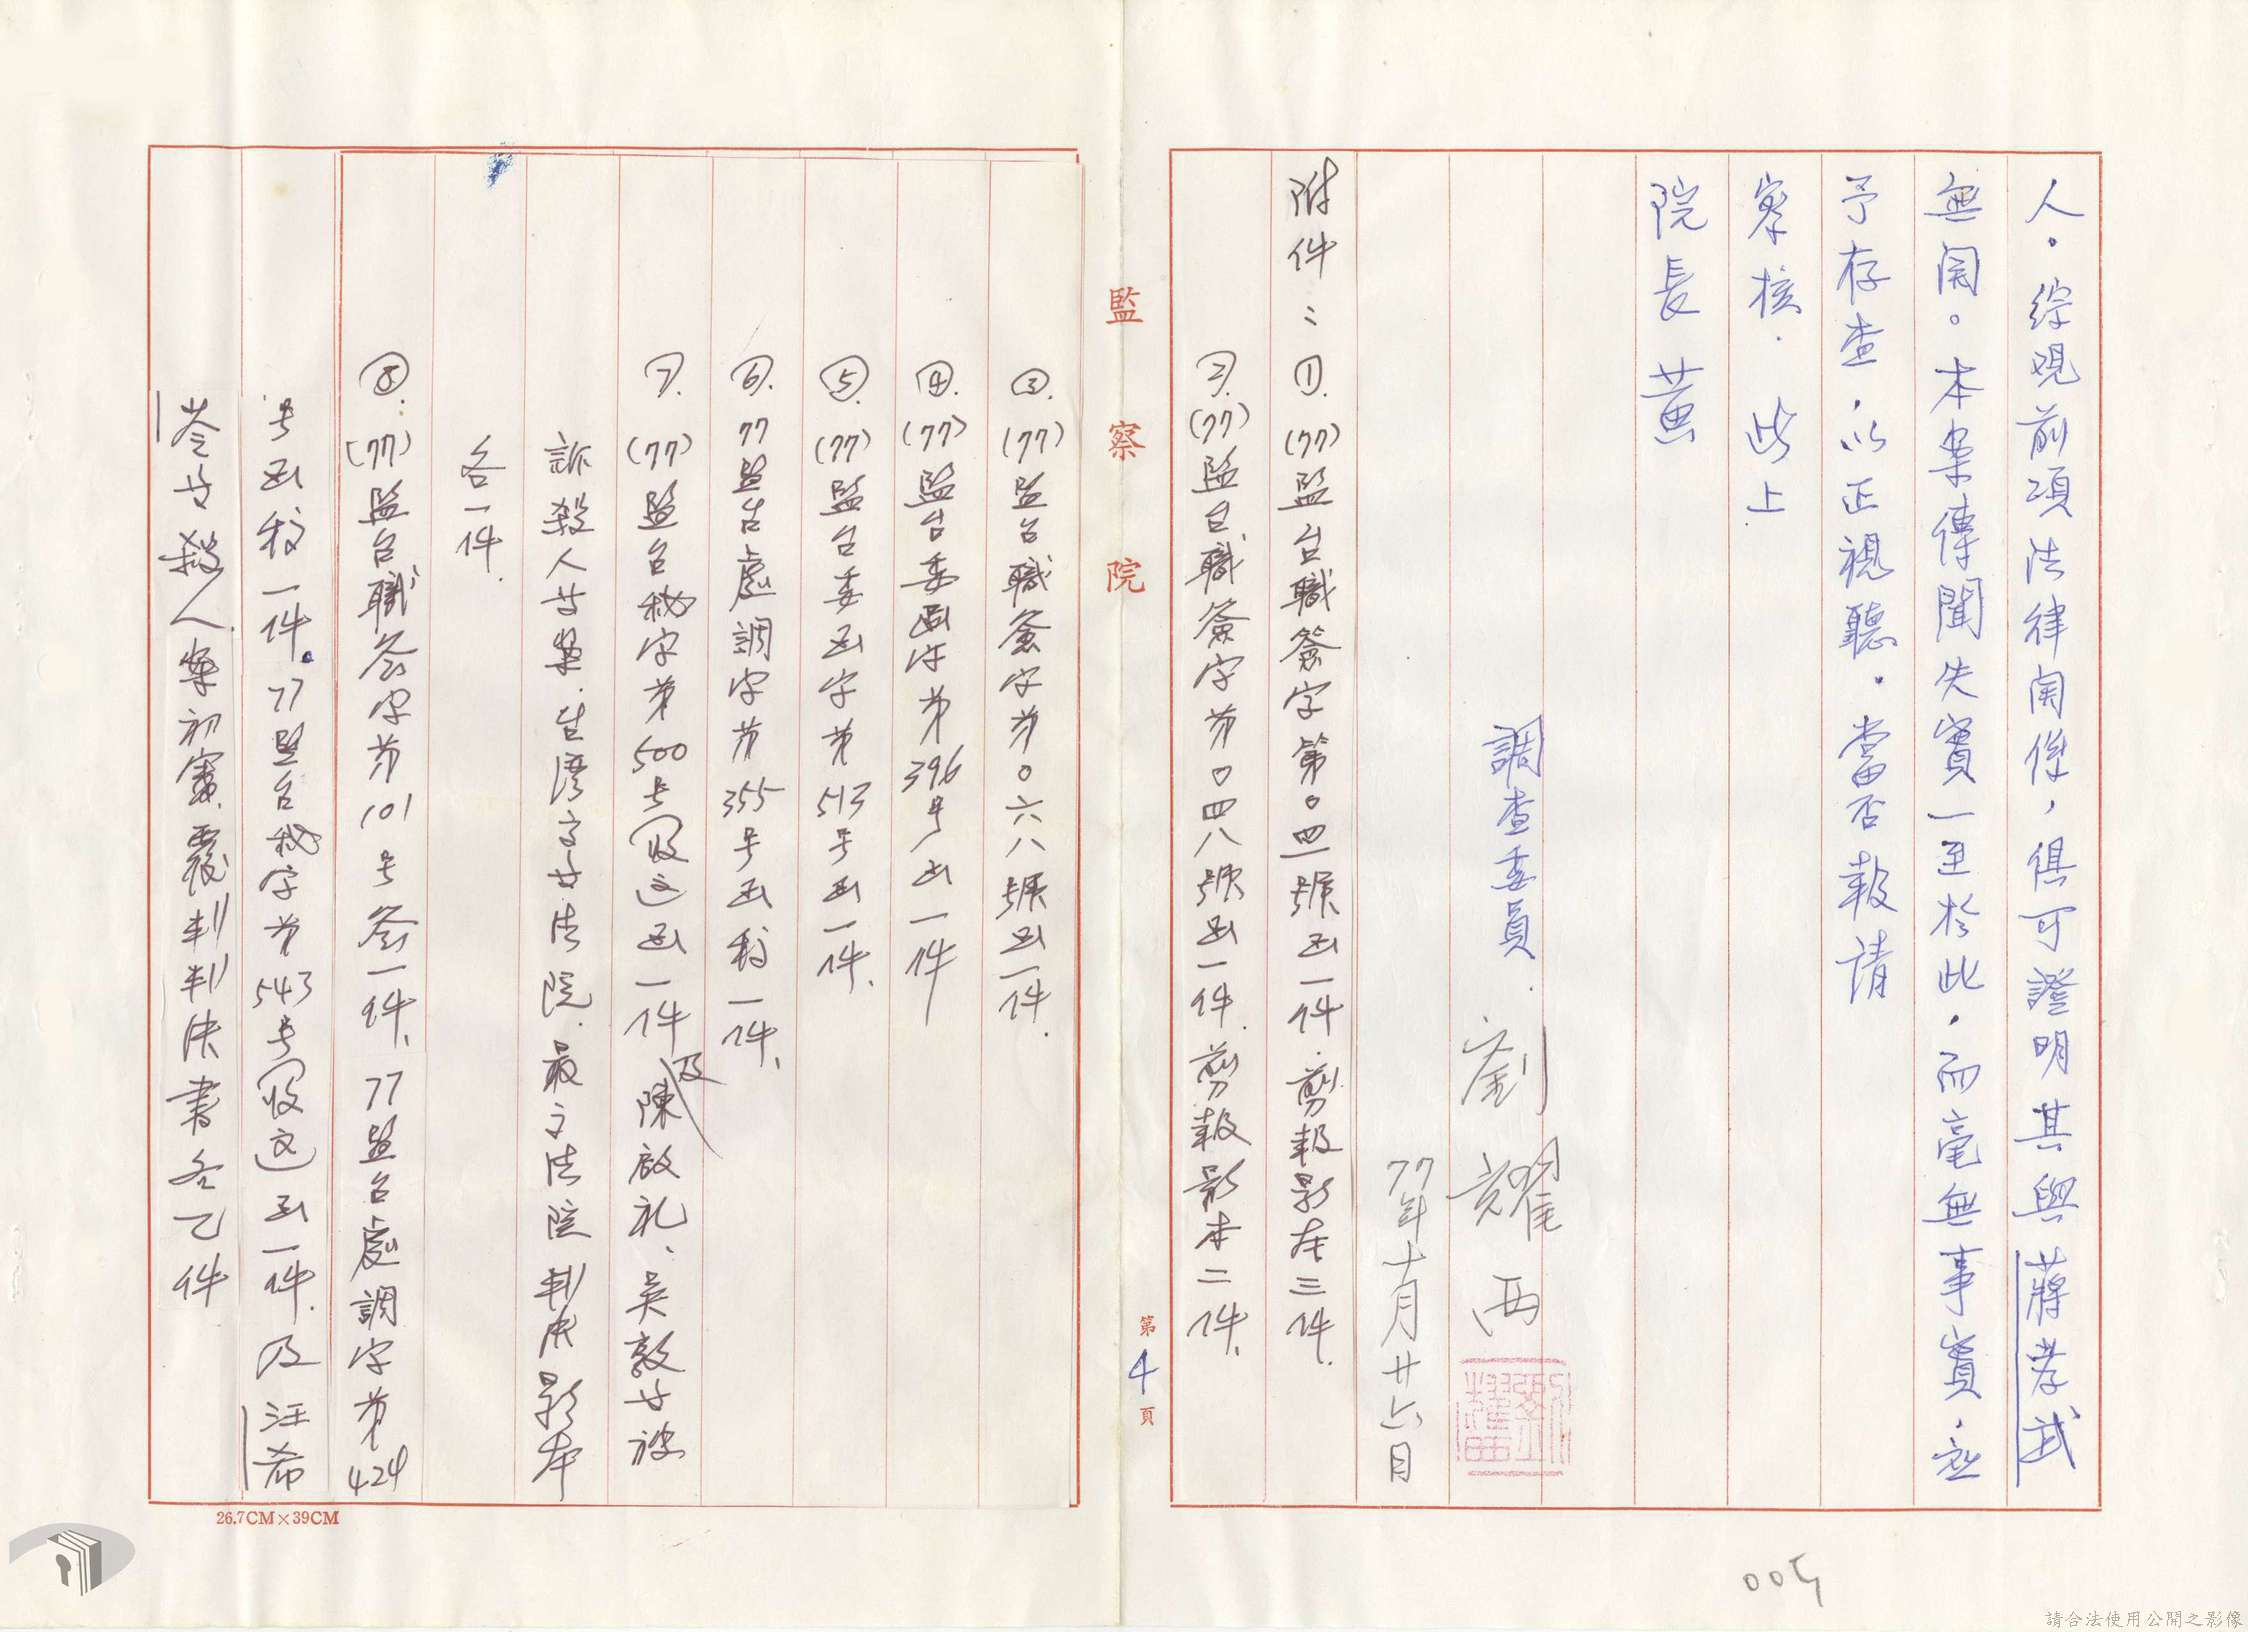 人。綜觀前項法律関係，俱可證明其與蔣孝武
無関。本案傳聞失實一至於此，而毫無事實，應
予存查，以正視聽。當否報請
察核．此上
院長黃
調查委員．劉耀西
77年十月廿六日
附件：①．(77)監台職簽字第〇四一號函一件．剪報影本三件．
②．(77)監台職簽字第〇四八號函一件．剪報影本二件．
監察院
第4頁
③．(77)監台職簽字第〇六八號函一件．
④．(77)監台委函字第396号函一件
⑤．(77)監台委函字第513号函一件．
⑥．77監台處調字第355号函稿一件．
⑦．(77)監台秘字第500号(收文)函一件及陳啟礼、吳敦等被
訴殺人等案．台灣高等法院．最高法院判決影本
各一件．
⑧．(77)監台職簽字第101号簽一件、77監台處調字第424
号函稿一件．77監台秘字第543号(收文)函一件．及汪希
苓等殺人案初審．覆判判決書各乙件
26.7CM×39CM
005
請合法使用公開之影像